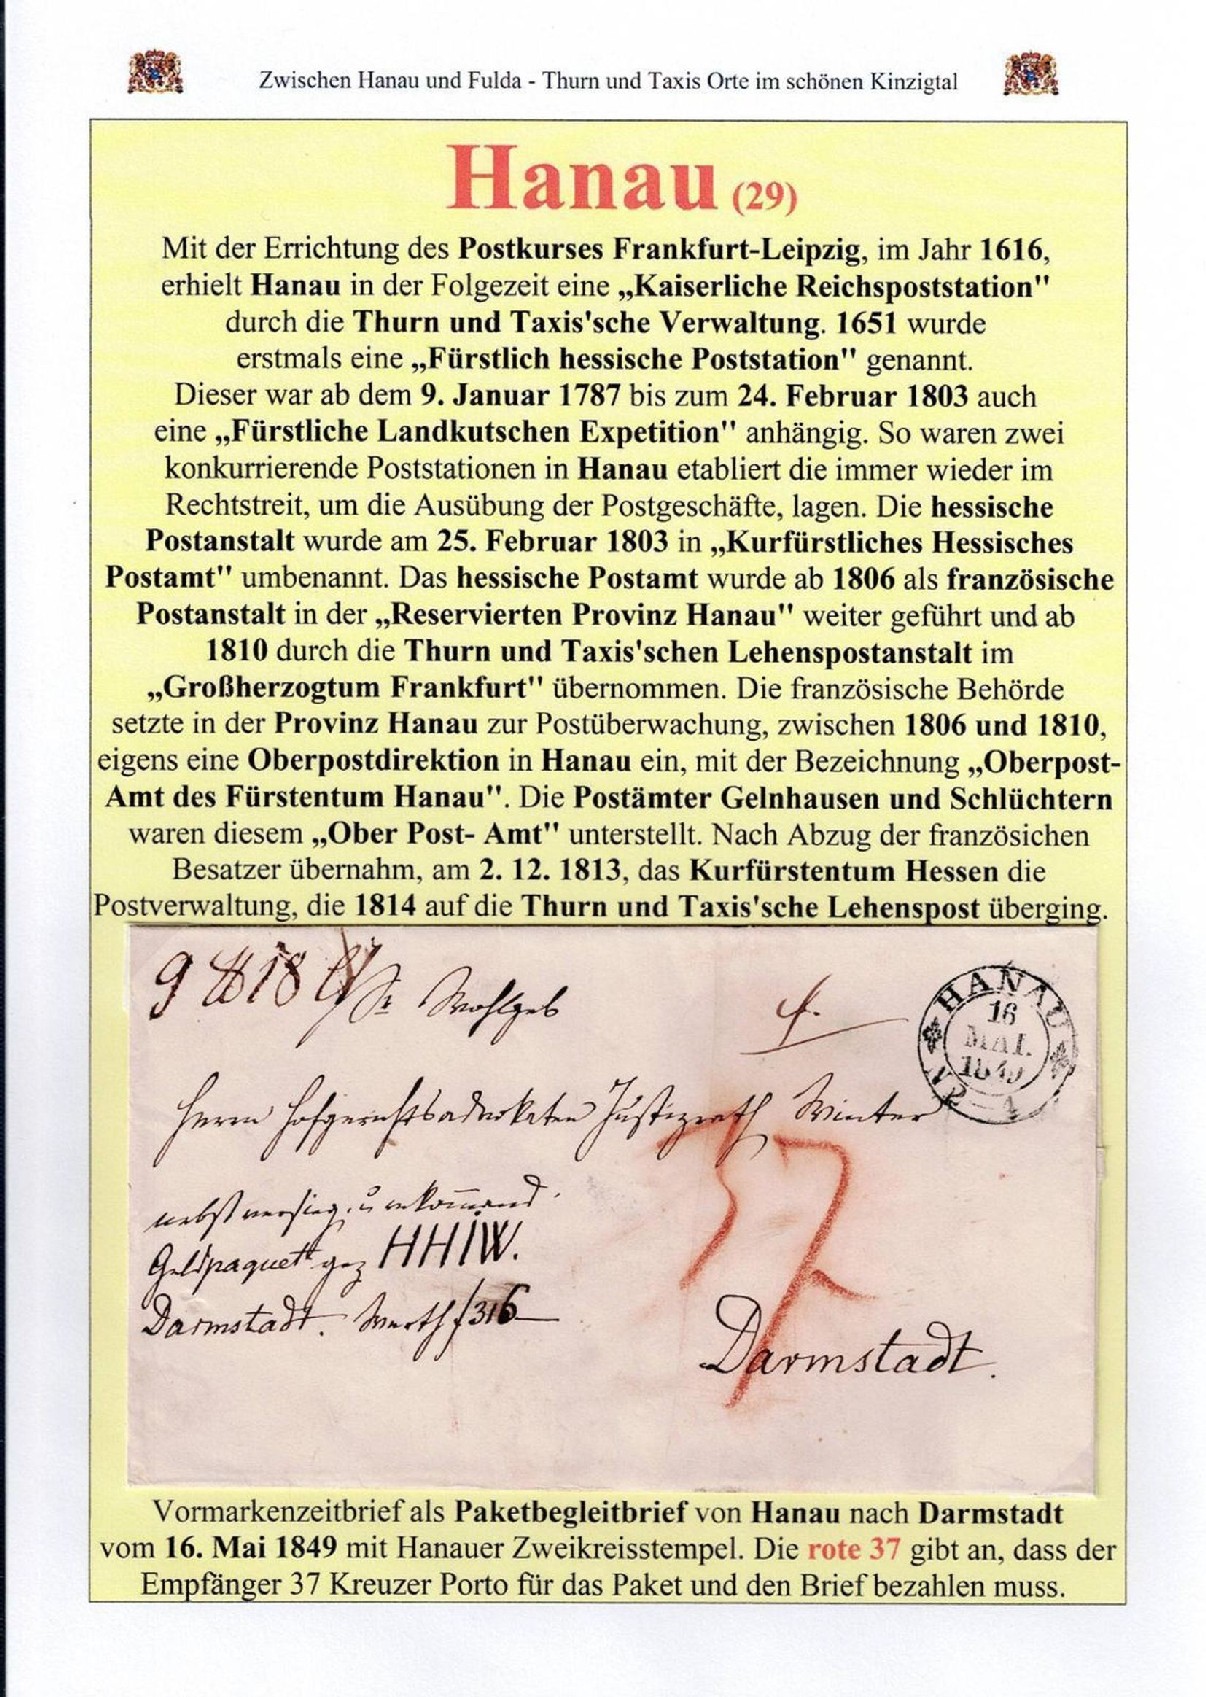 Zwischen Hanau und Fulda - Thurn und Taxis Orte im schönen Kinzigtal
Hanau (29)
Mit der Errichtung des Postkurses Frankfurt-Leipzig, im Jahr 1616,
erhielt Hanau in der Folgezeit eine „Kaiserliche Reichspoststation"
durch die Thurn und Taxis'sche Verwaltung. 1651 wurde
erstmals eine „Fürstlich hessische Poststation" genannt.
Dieser war ab dem 9. Januar 1787 bis zum 24. Februar 1803 auch
eine „Fürstliche Landkutschen Expetition" anhängig. So waren zwei
konkurrierende Poststationen in Hanau etabliert die immer wieder im
Rechtstreit, um die Ausübung der Postgeschäfte, lagen. Die hessische
Postanstalt wurde am 25. Februar 1803 in „Kurfürstliches Hessisches
Postamt" umbenannt. Das hessische Postamt wurde ab 1806 als französische
Postanstalt in der „Reservierten Provinz Hanau" weiter geführt und ab
1810 durch die Thurn und Taxis'schen Lehenspostanstalt im
„Großherzogtum Frankfurt" übernommen. Die französische Behörde
setzte in der Provinz Hanau zur Postüberwachung, zwischen 1806 und 1810,
eigens eine Oberpostdirektion in Hanau ein, mit der Bezeichnung „Oberpost-
Amt des Fürstentum Hanau". Die Postämter Gelnhausen und Schlüchtern
waren diesem „Ober Post- Amt" unterstellt. Nach Abzug der französichen
Besatzer übernahm, am 2. 12. 1813, das Kurfürstentum Hessen die
Postverwaltung, die 1814 auf die Thurn und Taxis'sche Lehenspost überging.
9 18
Sr Wohlgeb
HANAU
16
MAI.
1849
Herrn Hofgerichtsadvokaten Justizrath Winter
37
nebst versieg. u
Geldpaquet gez HHIW.
Darmstadt. Werth f 316
Darmstadt.
Vormarkenzeitbrief als Paketbegleitbrief von Hanau nach Darmstadt
vom 16. Mai 1849 mit Hanauer Zweikreisstempel. Die rote 37 gibt an, dass der
Empfänger 37 Kreuzer Porto für das Paket und den Brief bezahlen muss.